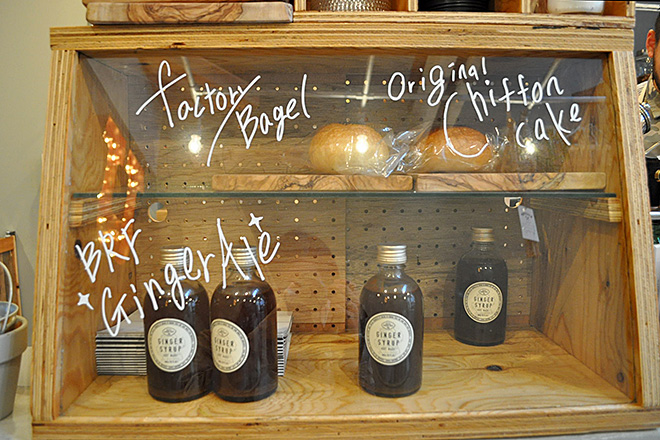 factory/
Bagel
Original
Chiffon
cake
BKF
Ginger Ale
GINGER
SYRUP
GINGER
SYRUP
GINGER
SYRUP
GINGER
SYRUP